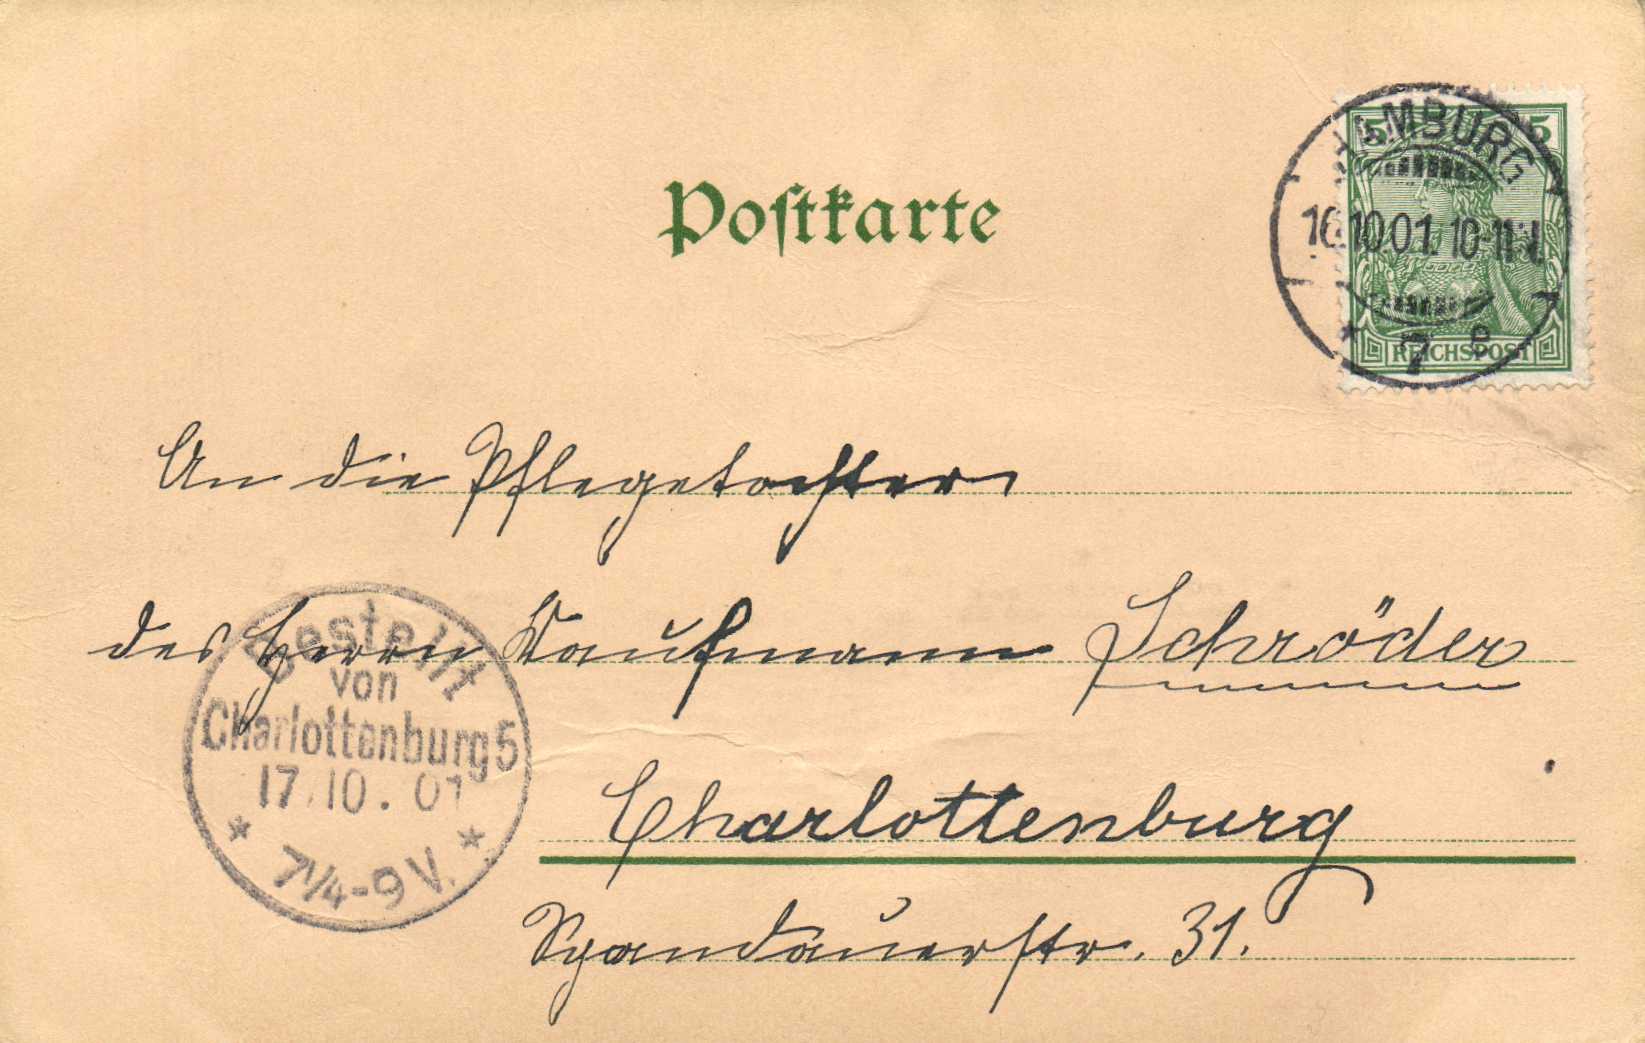 HAMBURG
5 5
16.10.01. 10-11 V.
* 7 e
REICHSPOST
Postkarte
An die Pflegetochter
des Herrn Kaufmann Schröder
Bestellt
von
Charlottenburg 5
17.10.01
* 7¼-9V. *
Charlottenburg
Spandauerstr. 31.